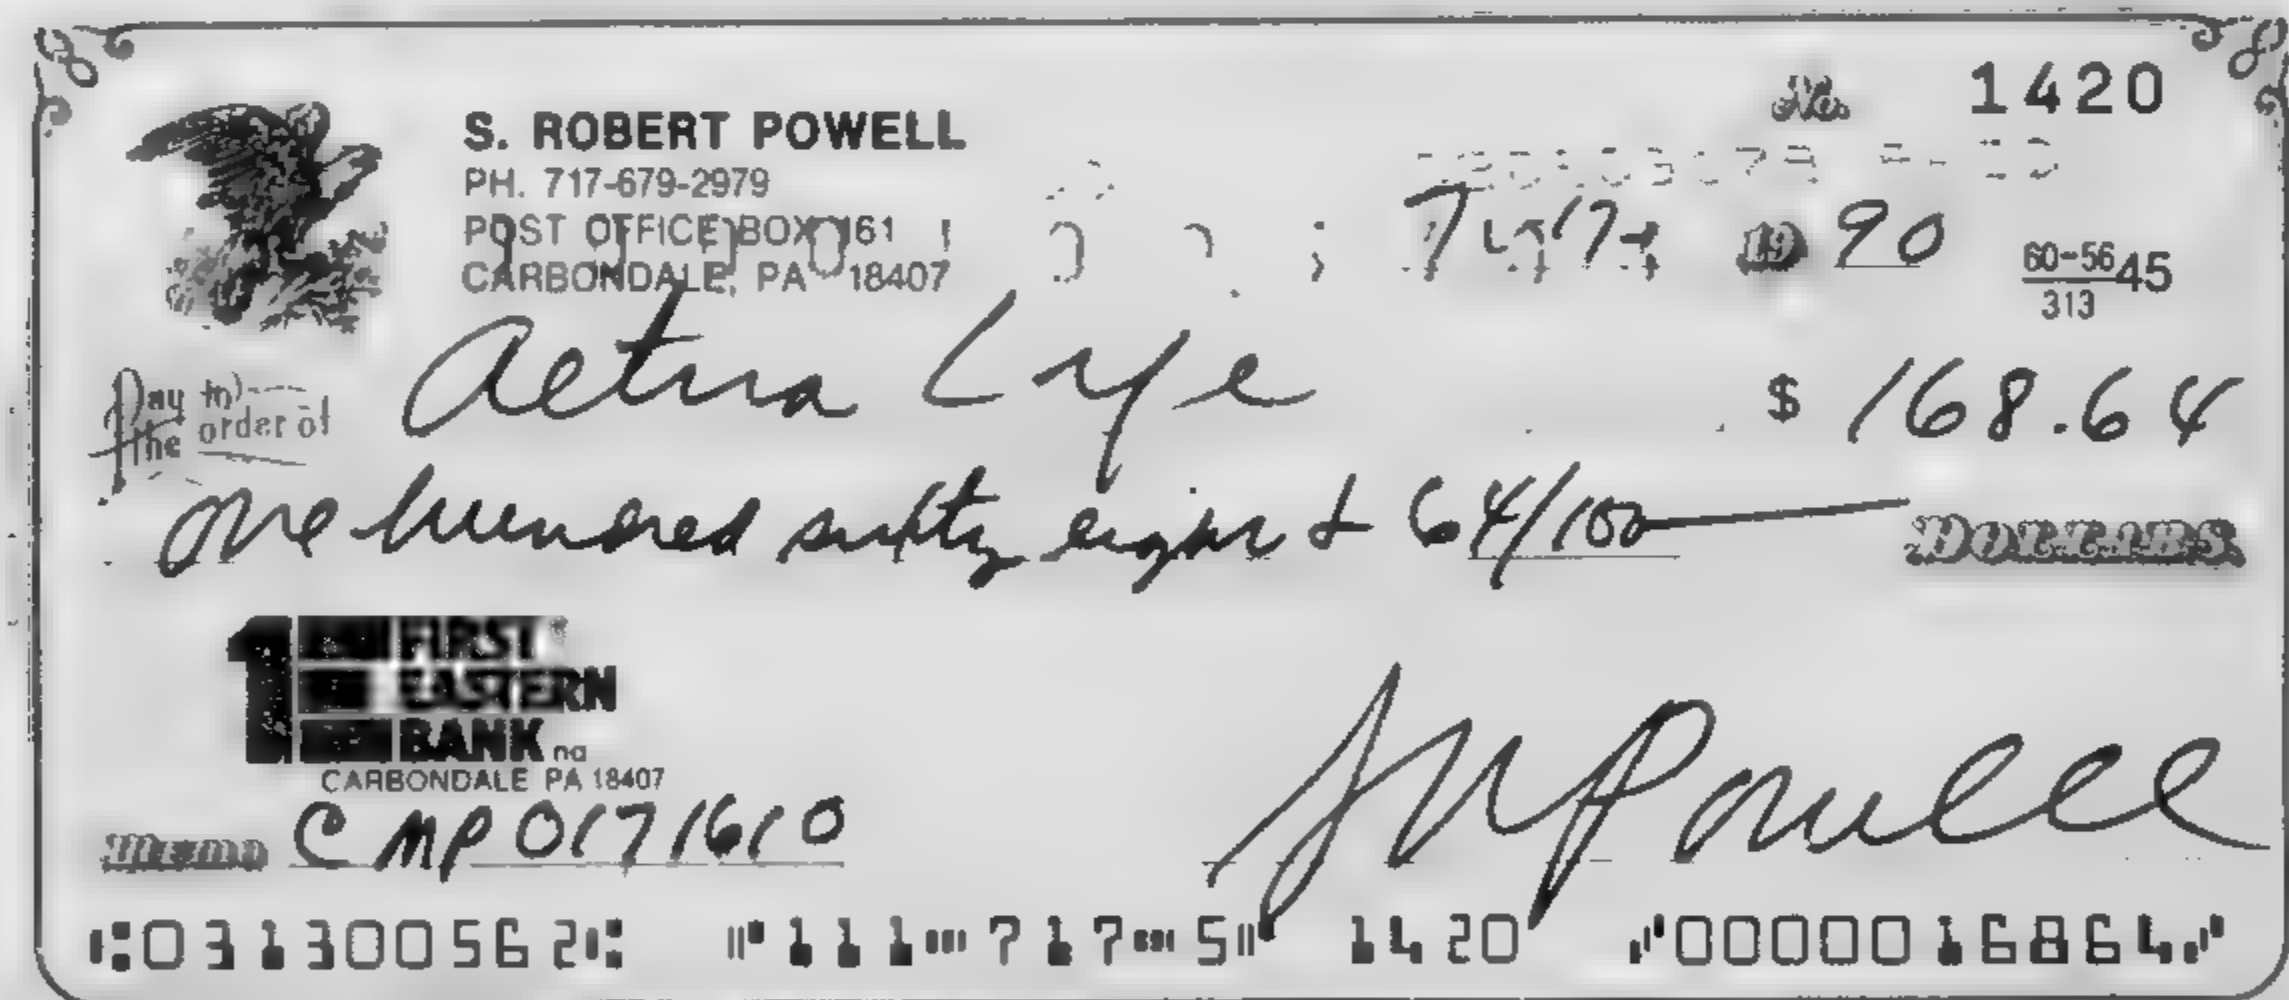 No. 1420
S. ROBERT POWELL
PH. 717-679-2979
POST OFFICE BOX 161
CARBONDALE, PA 18407
19 90
60-56 45
313
Pay to the order of Aetna Life $ 168.64
One hundred sixty eight & 64/100 DOLLARS
1 FIRST
EASTERN
BANK na
CARBONDALE PA 18407
Memo CMP 0171610
Powell
⑆031300562⑆ ⑈111⑉717⑉5⑈ 1420 ⑇0000016864⑇